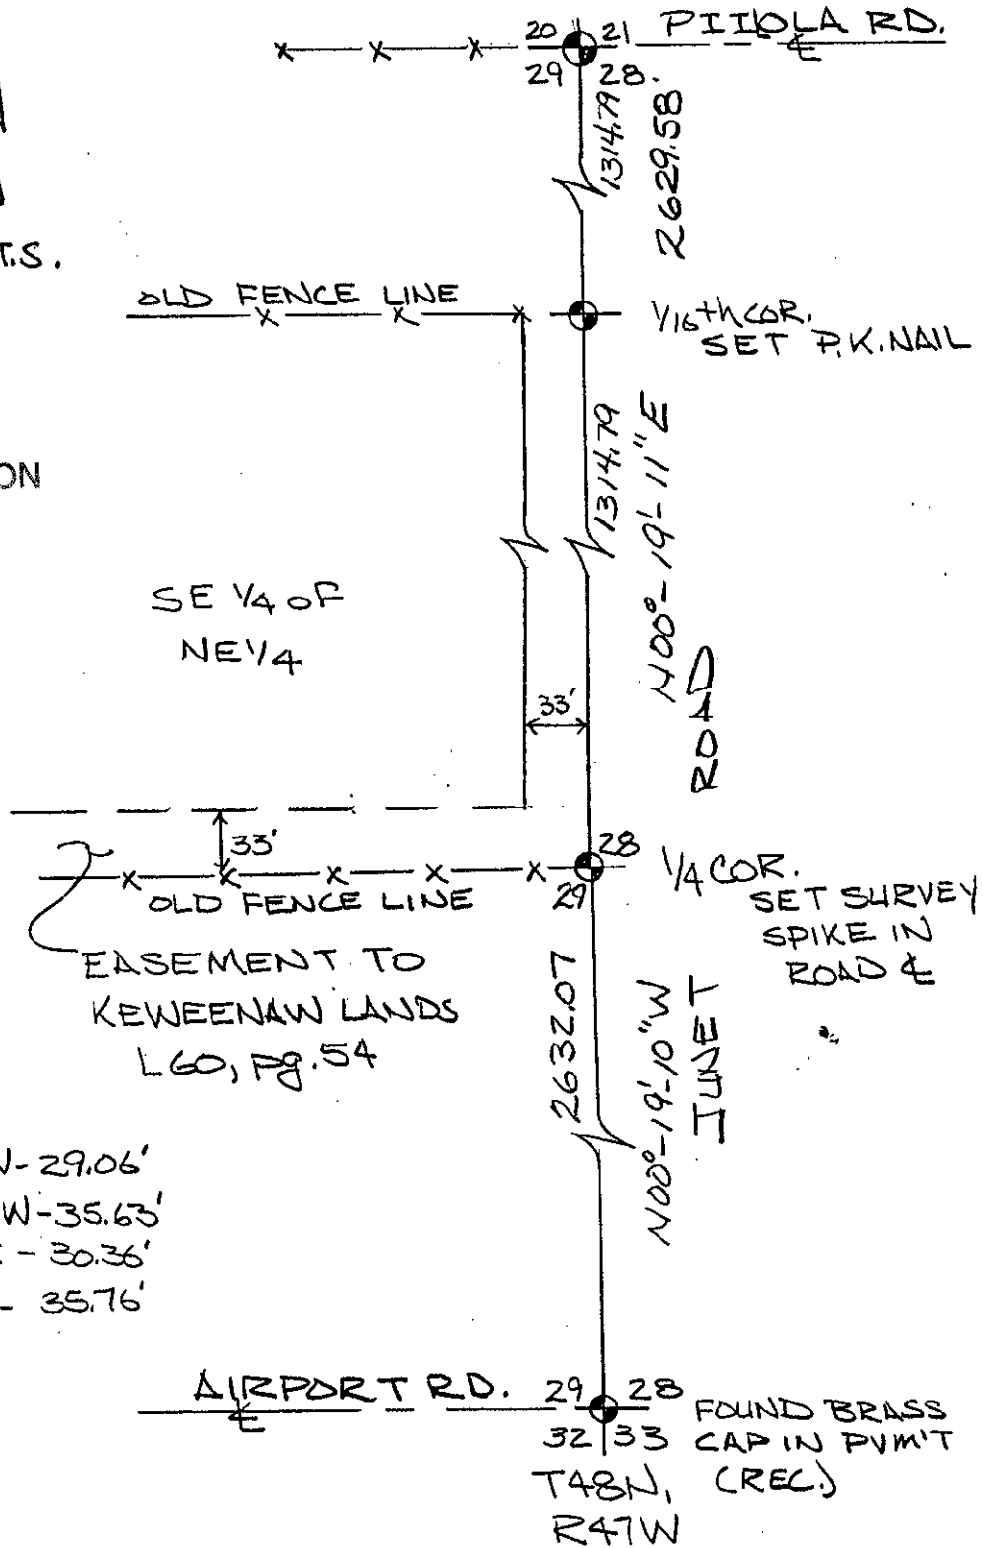 20 21 PIIOLA RD.
29 28.
℄
1314.79
2629.58
T.S.
OLD FENCE LINE
1/16th COR.
SET P.K. NAIL
1314.79
N00°-19'-11"E
ON
SE 1/4 OF
NE 1/4
33'
ROAD
33'
28
29
1/4 COR.
SET SURVEY
SPIKE IN
ROAD ℄
OLD FENCE LINE
EASEMENT TO
KEWEENAW LANDS
L60, pg. 54
2632.07
N00°-19'-10"W
JUNET
- 29.06'
W - 35.63'
- 30.36'
- 35.76'
AIRPORT RD.
℄
29 28
32 33
FOUND BRASS
CAP IN PVM'T
(REC.)
T48N,
R47W